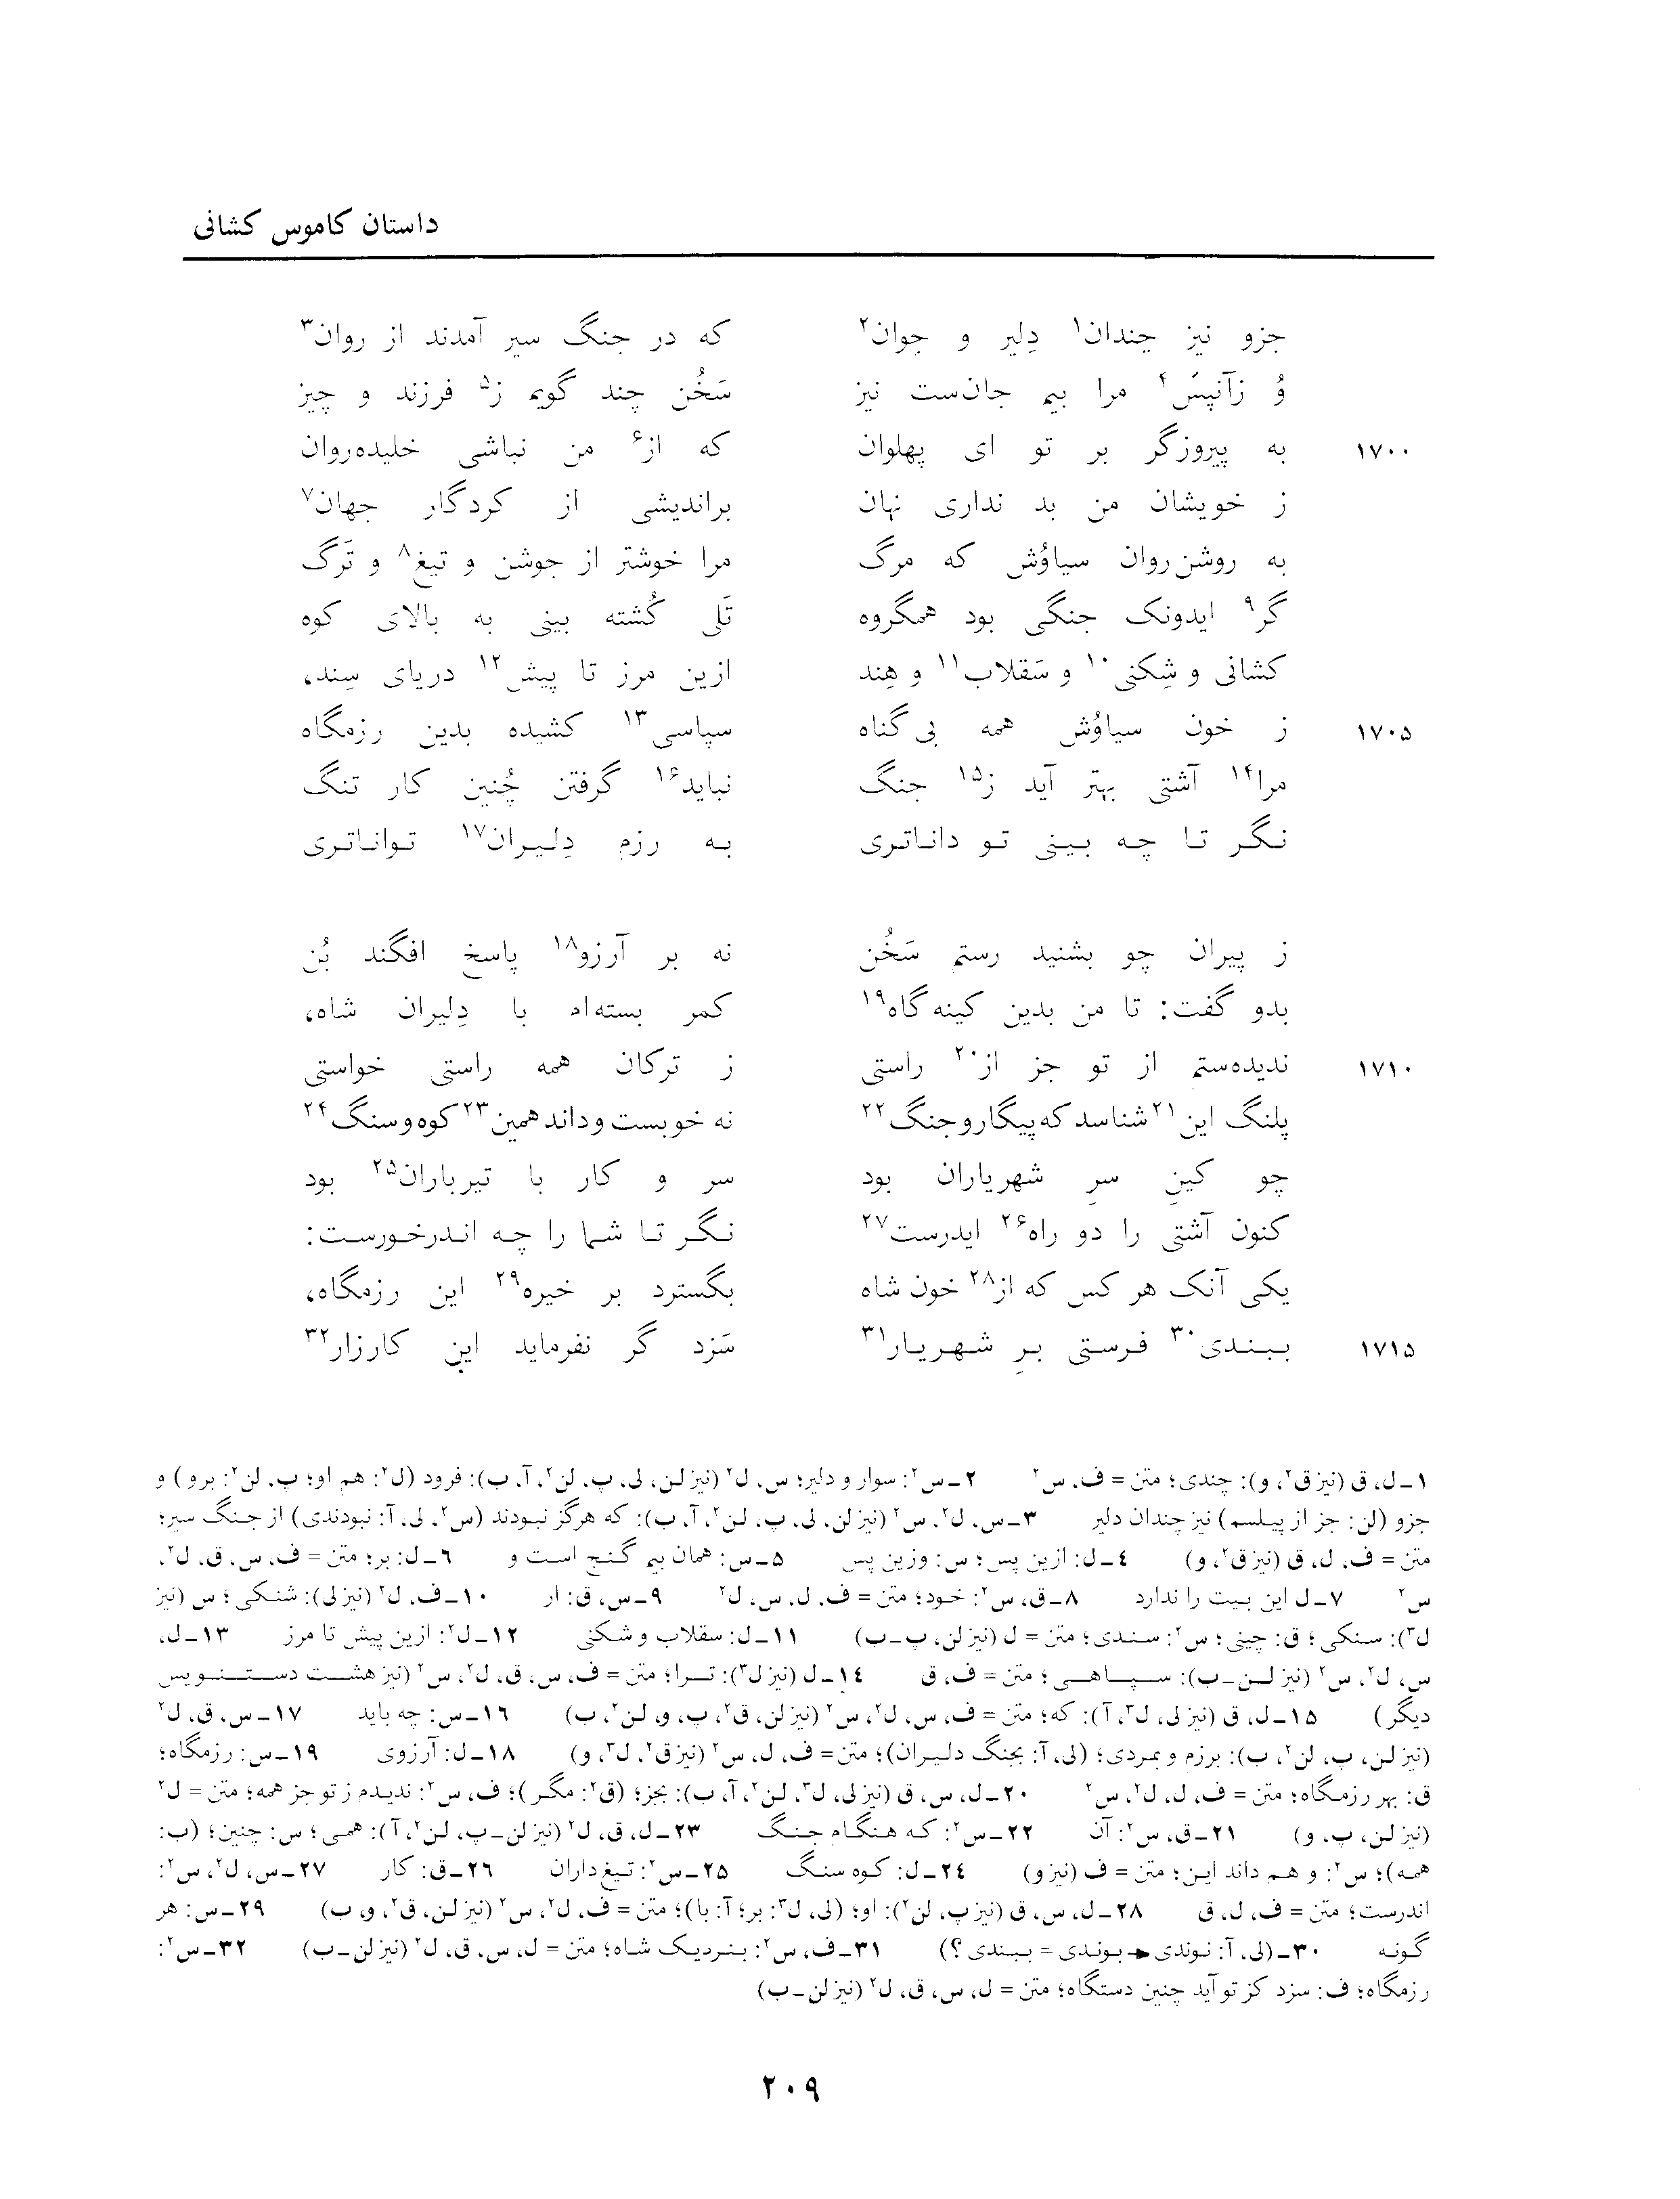 داستان کاموس کشانی
جزو نیز چندان۱ دِلیر و جوان۲ که در جنگ سیر آمدند از روان۳
وُ زآنپسَ۴ مرا بیم جان‌ست نیز سَخُن چند گویم ز۵ فرزند و چیز
۱۷۰۰ به پیروزگر بر تو ای پهلوان که از۶ من نباشی خلیده‌روان
ز خویشان من بد نداری نهان براندیشی از کردگار جهان۷
به روشن‌روان سیاوُش که مرگ مرا خوشتر از جوشن و تیغ۸ و تَرگ
گر۹ ایدونک جنگی بود همگروه تَلی کُشته بینی به بالای کوه
کشانی و شِکنی۱۰ و سَقلاب۱۱ و هِند ازین مرز تا پیش۱۲ دریای سِند،
۱۷۰۵ ز خون سیاوُش همه بی‌گناه سپاسی۱۳ کشیده بدین رزمگاه
مرا۱۴ آشتی بهتر آید ز۱۵ جنگ نباید۱۶ گرفتن چُنین کار تنگ
نگر تا چه بینی تو داناتری به رزم دِلیران۱۷ تواناتری
ز پیران چو بشنید رستم سَخُن نه بر آرزو۱۸ پاسخ افگند بُن
بدو گفت: تا من بدین کینه‌گاه۱۹ کمر بسته‌ام با دِلیران شاه،
۱۷۱۰ ندیده‌ستم از تو جز از۲۰ راستی ز ترکان همه راستی خواستی
پلنگ این۲۱ شناسد که پیگار و جنگ۲۲ نه خوبست و داند همین۲۳ کوه و سنگ۲۴
چو کینِ سرِ شهریاران بود سر و کار با تیرباران۲۵ بود
کنون آشتی را دو راه۲۶ ایدرست۲۷ نگر تا شما را چه اندرخورست:
یکی آنک هر کس که از۲۸ خون شاه بگسترد بر خیره۲۹ این رزمگاه،
۱۷۱۵ ببندی۳۰ فرستی برِ شهریار۳۱ سَزد گر نفرماید این کارزار۳۲
۱ـ ل، ق (نیز ق۲، و): چندی؛ متن = ف، س۲ ۲ـ س۲: سوار و دلیر؛ س، ل۲ (نیز لن، لی، پ، لن۲، آ، ب): فرود (ل۲: هم او؛ پ، لن۲: برو) و
جزو (لن: جز از پیلسم) نیز چندان دلیر ۳ـ س، ل۲، س۲ (نیز لن، لی، پ، لن۲، آ، ب): که هرگز نبودند (س۲، لی، آ: نبودندی) از جنگ سیر؛
متن = ف، ل، ق (نیز ق۲، و) ۴ـ ل: ازین پس؛ س: وزین پس ۵ـ س: همان بیم گنج است و ۶ـ ل: بر؛ متن = ف، س، ق، ل۲،
س۲ ۷ـ ل این بیت را ندارد ۸ـ ق، س۲: خود؛ متن = ف، ل، س، ل۲ ۹ـ س، ق: ار ۱۰ـ ف، ل۲ (نیز لی): شنکی؛ س (نیز
ل۳): سنکی؛ ق: چینی؛ س۲: سندی؛ متن = ل (نیز لن، پ ـ ب) ۱۱ـ ل: سقلاب و شکنی ۱۲ـ ل۲: ازین پیش تا مرز ۱۳ـ ل،
س، ل۲، س۲ (نیز لن ـ ب): سپاهی؛ متن = ف، ق ۱۴ـ ل (نیز ل۳): ترا؛ متن = ف، س، ق، ل۲، س۲ (نیز هشت دستنویس
دیگر) ۱۵ـ ل، ق (نیز لی، ل۳، آ): که؛ متن = ف، س، ل۲، س۲ (نیز لن، ق۲، پ، و، لن۲، ب) ۱۶ـ س: چه باید ۱۷ـ س، ق، ل۲
(نیز لن، پ، لن۲، ب): برزم و بمردی؛ (لی، آ: بجنگ دلیران)؛ متن = ف، ل، س۲ (نیز ق۲، ل۳، و) ۱۸ـ ل: آرزوی ۱۹ـ س: رزمگاه؛
ق: بهر رزمگاه؛ متن = ف، ل، ل۲، س۲ ۲۰ـ ل، س، ق (نیز لی، ل۳، لن۲، آ، ب): بجز؛ (ق۲: مگر)؛ ف، س۲: ندیدم ز تو جز همه؛ متن = ل۲
(نیز لن، پ، و) ۲۱ـ ق، س۲: آن ۲۲ـ س۲: که هنگام جنگ ۲۳ـ ل، ق، ل۲ (نیز لن ـ پ، لن۲، آ): همی؛ س: چنین؛ (ب:
همه)؛ س۲: و هم داند این؛ متن = ف (نیز و) ۲۴ـ ل: کوه سنگ ۲۵ـ س۲: تیغ‌داران ۲۶ـ ق: کار ۲۷ـ س، ل۲، س۲:
اندرست؛ متن = ف، ل، ق ۲۸ـ ل، س، ق (نیز پ، لن۲): او؛ (لی، ل۳: بر؛ آ: با)؛ متن = ف، ل۲، س۲ (نیز لن، ق۲، و، ب) ۲۹ـ س: هر
گونه ۳۰ـ (لی، آ: نوندی ← بوندی = ببندی؟) ۳۱ـ ف، س۲: بنردیک شاه؛ متن = ل، س، ق، ل۲ (نیز لن ـ ب) ۳۲ـ س۲:
رزمگاه؛ ف: سزد کز تو آید چنین دستگاه؛ متن = ل، س، ق، ل۲ (نیز لن ـ ب)
۲۰۹